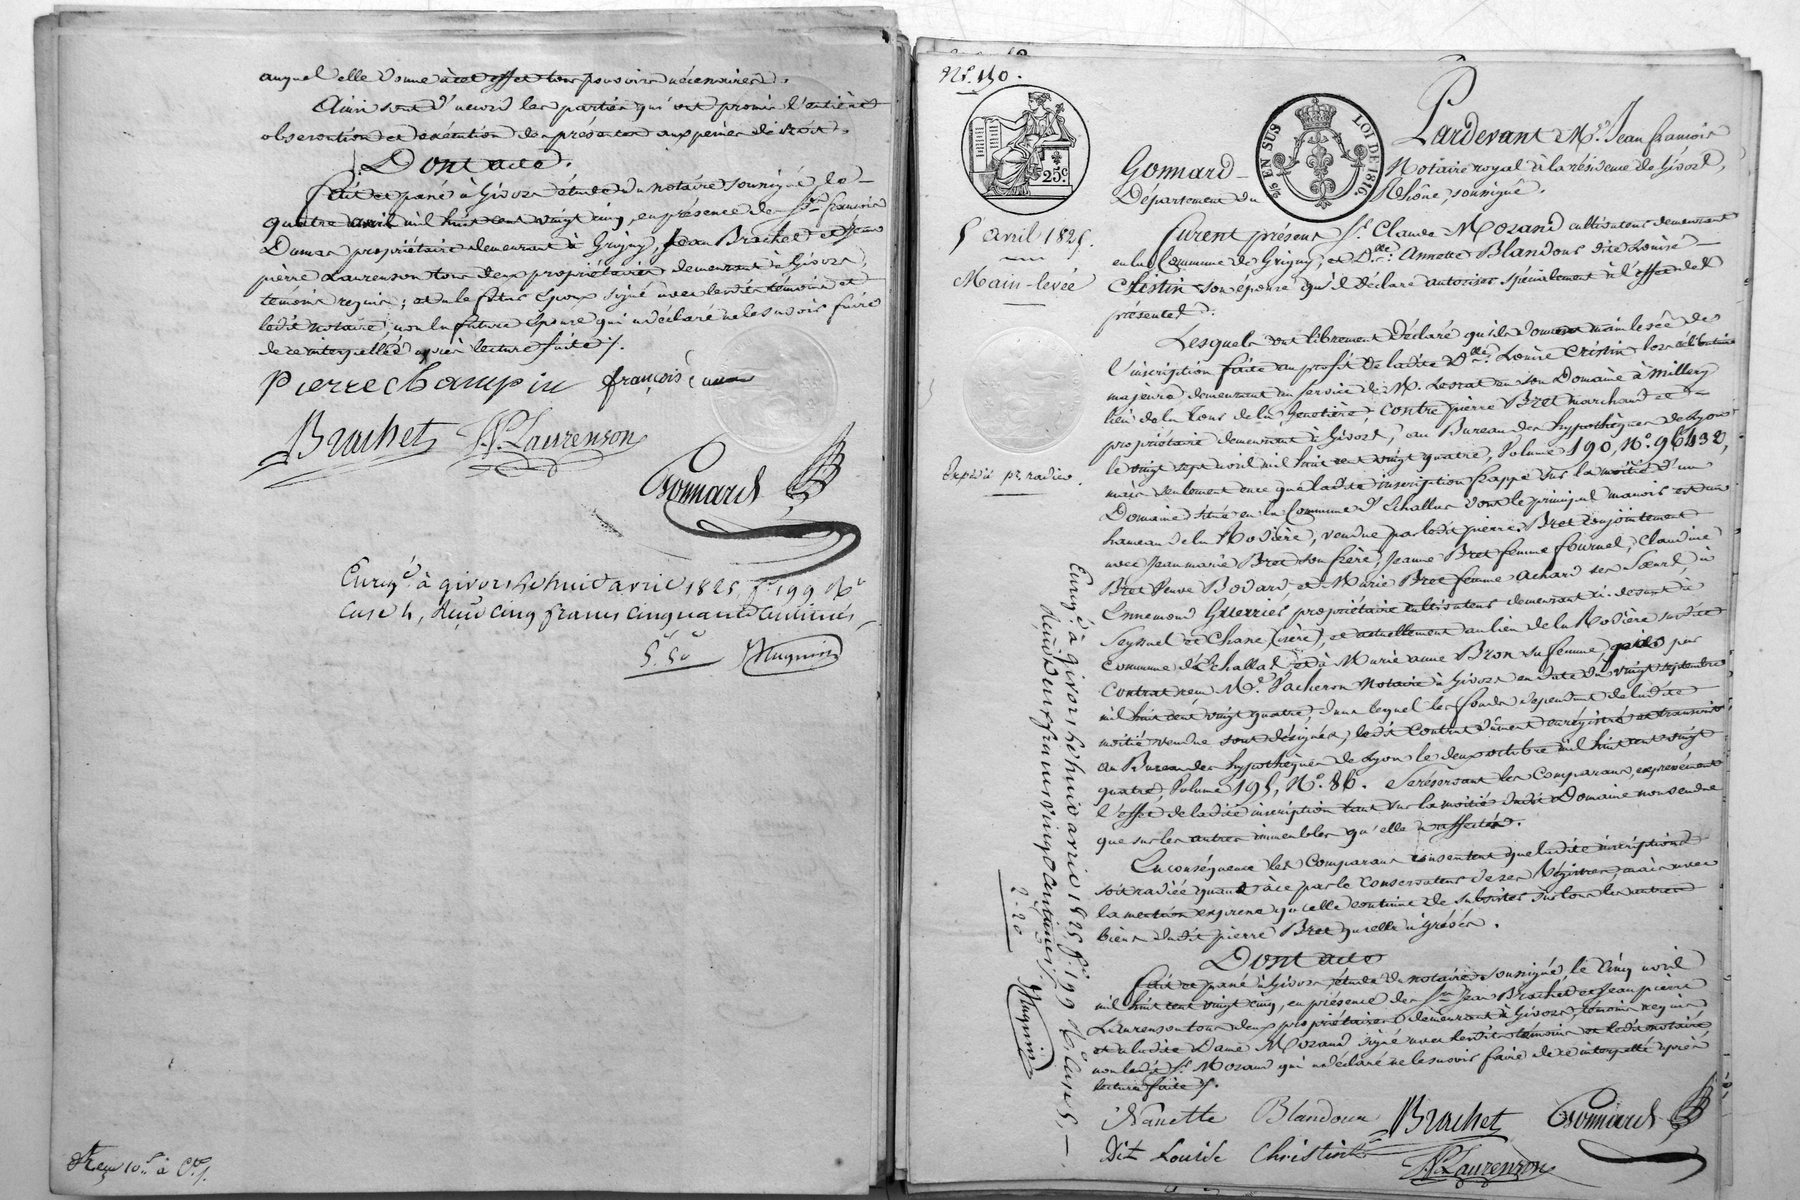 auquel elle donne à cet effet tous pouvoirs nécessaires.
Ainsi sont d'accord les parties qui ont promis l'entière
observation et exécution des présentes aux peines de droit.
Dont acte.
Fait et passé à Givors étude du notaire soussigné le
quatre avril mil huit cent vingt cinq, en présence de Srs françois
Dumas propriétaire demeurant à Grigny, Jean Brachet et Jean
pierre Laurenson tous deux propriétaires demeurant à Givors,
témoins requis; et a le futur époux signé avec lesdits témoins et
ledit notaire, non la future épouse qui a déclaré ne le savoir faire
de ce interpellée après lecture faite ./.
pierre champin françois
Brachet J.P. Laurenson
Gonnard
Enregé à givors le huit avril 1825, f° 199 Ro
Case 4, Reçu cinq francs cinquante centimes,
5f. 50c Hugnin
No. 150.
25c.
25 EN SUS
LOI DE 1816
Pardevant Me. Jean françois
Gonnard Notaire royal à la résidence de Givors,
Département du Rhône, soussigné.
5 avril 1825.
Main-levée
Furent présents Sr. Claude Mozand cultivateur demeurant
en la Commune de Grigny, et Annette Blandour dite Louise
Christin son épouse qu'il déclare autoriser spécialement à l'effet des
présentes.
Lesquels ont librement déclaré qu'ils donnent main levée de
l'inscription faite au profit de ladite Dlle. Louise Christin lors célibataire
majeure demeurant au service de M. Lescat en son Domaine à Millery
lieu de la Tour de la contre pierre Bret marchand et
propriétaire demeurant à Givors, au Bureau des hypothèques de Lyon
le vingt sept avril mil huit cent vingt quatre, Volume 190, No. 96432,
mais seulement en ce que ladite inscription frappe sur la moitié d'un
Domaine situé en la Commune d'Echallas dont le principal manoir est au
hameau de la Rodière, vendue par ledit pierre Bret conjointement
avec Jean marie Bret son frère, Jeanne Bret femme fournel, Claudine
Bret Veuve Bodard, et Marie Bret femme Achard ses Sœurs, à
Ennemond Guerrier propriétaire cultivateur demeurant ci-devant à
Seyssuel et Chane (isère), et actuellement au lieu de la Rodière susdite
commune d'Echallas et à Marie anne Bron sa femme, par
Contrat reçu Me. Vacheron Notaire à Givors en date du vingt septembre
mil huit cent vingt quatre, dans lequel les fonds dépendant de ladite
moitié vendue sont désignés, ledit contrat dûment enregistré et transcrit
au Bureau des hypothèques de Lyon le deux octobre mil huit cent vingt
quatre, Volume 195, No. 86. se réservant les Comparans, expressément
l'effet de ladite inscription tant sur la moitié dudit Domaine non vendue
que sur les autres immeubles qu'elle a affectés.
En conséquence les Comparans consentent que ladite inscription
soit radiée quant à ce par le conservateur de ses Régistres, mais avec
la mention expresse qu'elle continue de subsister sur tous les autres
biens dudit pierre Bret qu'elle a grévés.
Dont acte
Fait et passé à Givors, étude du notaire soussigné, le Cinq avril
mil huit cent vingt cinq, en présence de Srs Jean Brachet et Jean pierre
Laurenson tous deux propriétaires demeurant à Givors, témoins requis
et a ladite Dame Mozand signé avec lesdits témoins et ledit notaire
non ledit Sr. Mozand qui a déclaré ne le savoir faire de ce interpellé après
lecture faite ./.
Nanette Blandour Brachet Gonnard
dit Louise Christin J.P. Laurenson
Enregé à givors le huit avril 1825, f° 199 Ro Case 5,
Reçu deux francs vingt centimes,
2. 20 Hugnin